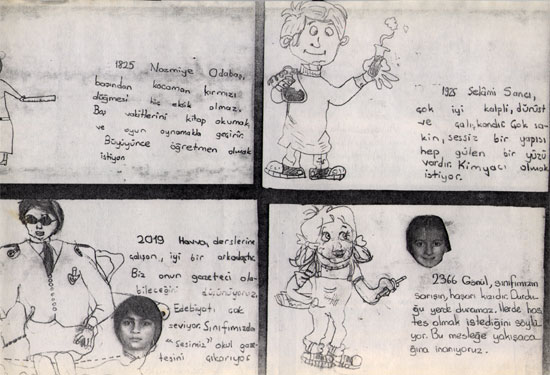 1825 Nazmiye Odabaşı,
başından kocaman kırmızı
düğmesi hiç eksik olmaz.
Boş vakitlerini kitap okumak
ve oyun oynamakla geçirir.
Büyüyünce öğretmen olmak
istiyor.
1925 Selâmi Sarıcı,
çok iyi kalpli, dürüst
ve çalışkandır. Çok sa-
kin, sessiz bir yapısı
hep gülen bir yüzü
vardır. Kimyacı olmak
istiyor.
2019 Havva, derslerine
çalışan, iyi bir arkadaştır.
Biz onun gazeteci ola-
bileceğini düşünüyoruz.
Edebiyatı çok
seviyor. Sınıfımızda
"Sesimiz" okul gaze-
tesini çıkarıyor
2366 Gönül, sınıfımızın
sarışın, haşarı kızıdır. Durdu-
ğu yerde duramaz. İlerde hos-
tes olmak istediğini söylü-
yor. Bu mesleğe yakışaca-
ğına inanıyoruz.